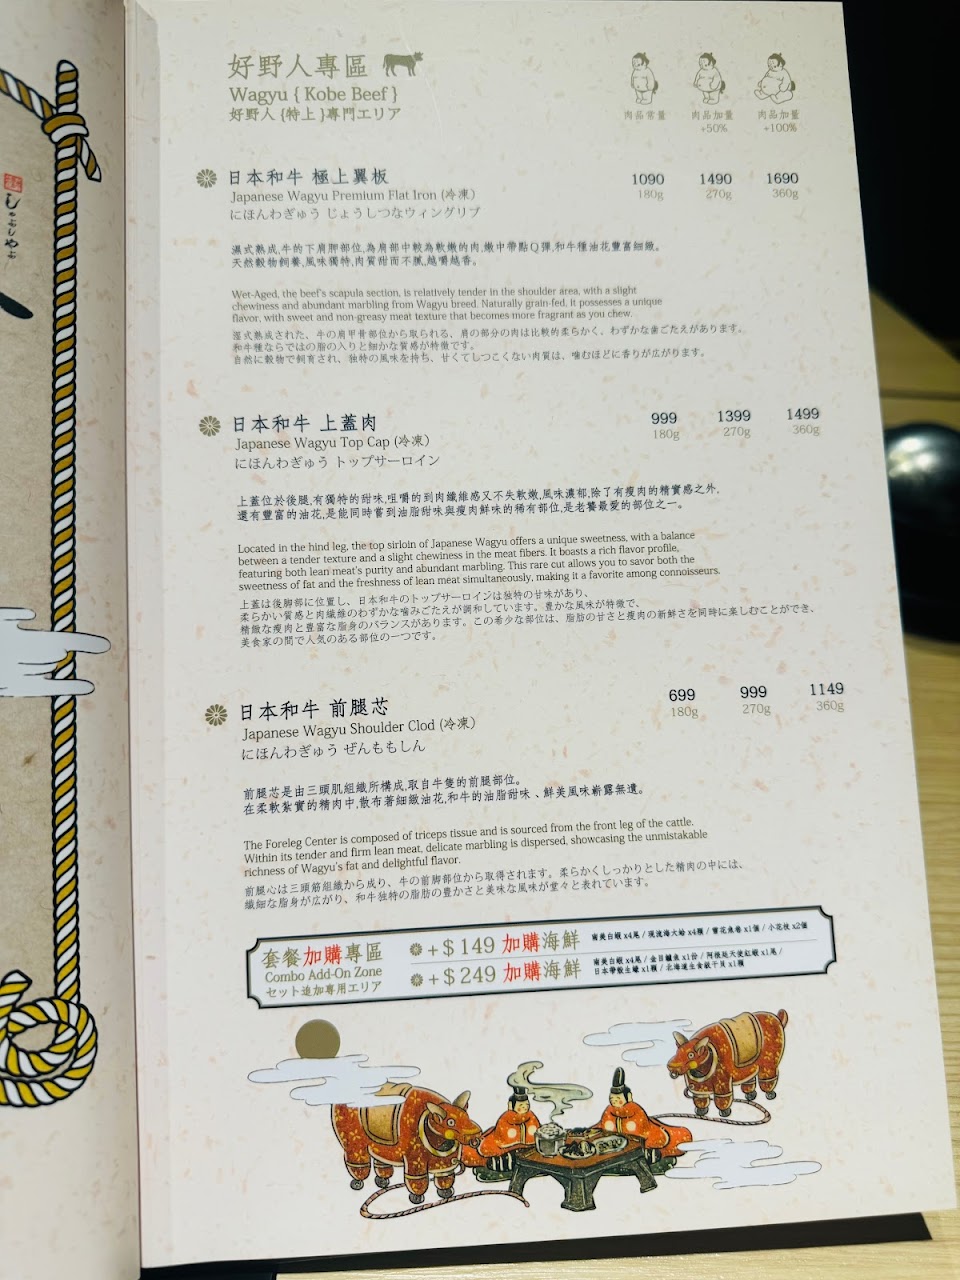 しゃぶしやぶ
好野人專區
Wagyu { Kobe Beef }
好野人 {特上 }專門エリア
肉品常量 肉品加量 肉品加量
+50% +100%
日本和牛 極上翼板 1090 1490 1690
Japanese Wagyu Premium Flat Iron (冷凍) 180g 270g 360g
にほんわぎゅう じょうしつなウィングリブ
濕式熟成,牛的下肩胛部位,為肩部中較為軟嫩的肉,嫩中帶點Q彈,和牛種油花豐富細緻。
天然穀物飼養,風味獨特,肉質甜而不膩,越嚼越香。
Wet-Aged, the beef's scapula section, is relatively tender in the shoulder area, with a slight
chewiness and abundant marbling from Wagyu breed. Naturally grain-fed, it possesses a unique
flavor, with sweet and non-greasy meat texture that becomes more fragrant as you chew.
湿式熟成された、牛の肩甲骨部位から取られる、肩の部分の肉は比較的柔らかく、わずかな歯ごたえがあります。
和牛種ならではの脂の入りと細かな質感が特徴です。
自然に穀物で飼育され、独特の風味を持ち、甘くてしつこくない肉質は、噛むほどに香りが広がります。
日本和牛 上蓋肉 999 1399 1499
Japanese Wagyu Top Cap (冷凍) 180g 270g 360g
にほんわぎゅう トップサーロイン
上蓋位於後腿,有獨特的甜味,咀嚼的到肉纖維感又不失軟嫩,風味濃郁,除了有瘦肉的精實感之外,
還有豐富的油花,是能同時嘗到油脂甜味與瘦肉鮮味的稀有部位,是老饕最愛的部位之一。
Located in the hind leg, the top sirloin of Japanese Wagyu offers a unique sweetness, with a balance
between a tender texture and a slight chewiness in the meat fibers. It boasts a rich flavor profile,
featuring both lean meat's purity and abundant marbling. This rare cut allows you to savor both the
sweetness of fat and the freshness of lean meat simultaneously, making it a favorite among connoisseurs.
上蓋は後脚部に位置し、日本和牛のトップサーロインは独特の甘味があり、
柔らかい質感と肉繊維のわずかな噛みごたえが調和しています。豊かな風味が特徴で、
精緻な瘦肉と豊富な脂身のバランスがあります。この希少な部位は、脂肪の甘さと瘦肉の新鮮さを同時に楽しむことができ、
美食家の間で人気のある部位の一つです。
日本和牛 前腿芯 699 999 1149
Japanese Wagyu Shoulder Clod (冷凍) 180g 270g 360g
にほんわぎゅう ぜんももしん
前腿芯是由三頭肌組織所構成,取自牛隻的前腿部位。
在柔軟紮實的精肉中,散布著細緻油花,和牛的油脂甜味、鮮美風味嶄露無遺。
The Foreleg Center is composed of triceps tissue and is sourced from the front leg of the cattle.
Within its tender and firm lean meat, delicate marbling is dispersed, showcasing the unmistakable
richness of Wagyu's fat and delightful flavor.
前腿心は三頭筋組織から成り、牛の前脚部位から取得されます。柔らかくしっかりとした精肉の中には、
繊細な脂身が広がり、和牛独特の脂肪の豊かさと美味な風味が堂々と表れています。
套餐加購專區
Combo Add-On Zone
セット追加専用エリア
+$149 加購海鮮 南美白蝦x4尾 / 現流海大蛤x4顆 / 雪花魚卷x1個 / 小花枝x2個
+$249 加購海鮮 南美白蝦x4尾 / 金目鱸魚x1份 / 阿根廷天使紅蝦x1尾 /
日本帶殼生蠔x1顆 / 北海道生食級干貝x1顆